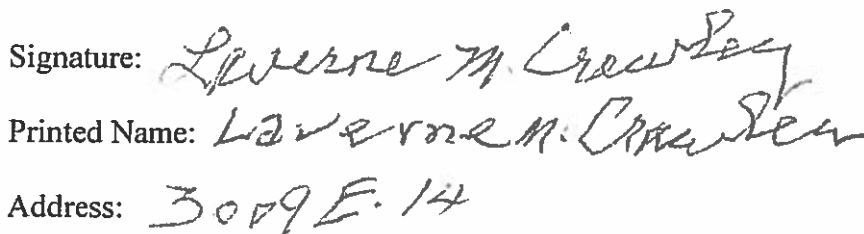 Signature: Laverne M. Crowley
Printed Name: Laverne M. Crowley
Address: 3009 E. 14